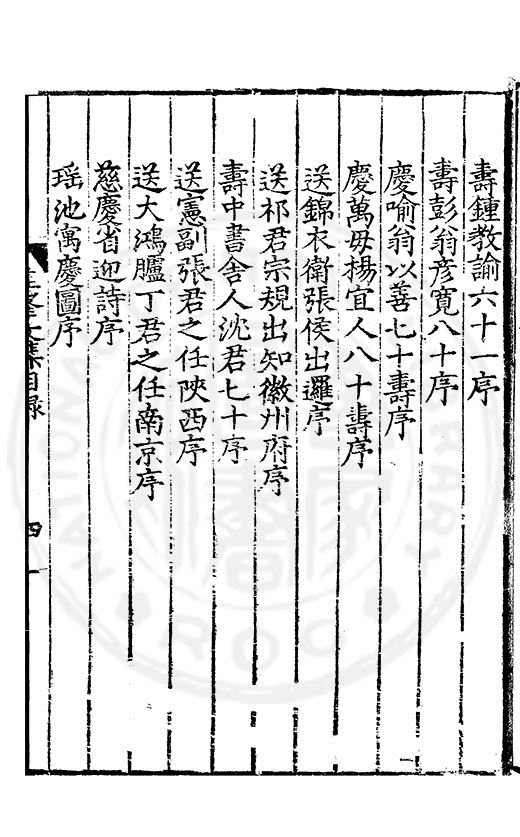 壽鍾教諭六十一序
壽彭翁彦寬八十序
慶喻翁以善七十壽序
慶萬毋楊宜人八十壽序
送錦衣衛張侯出邏序
送祁君宗規出知徽州府序
壽中書舍人沈君七十序
送憲副張君之任陜西序
送大鴻臚丁君之任南京序
慈慶省迎詩序
瑤池寓慶圖序
文集目録
四